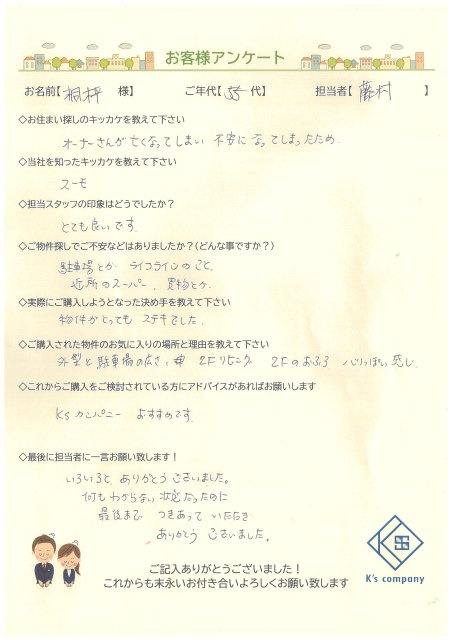 お客様アンケート
お名前【桐 様】 ご年代【55代】 担当者【藤村 】
◇お住まい探しのキッカケを教えて下さい
オーナーさんが亡くなってしまい 不安になってしまったため.
◇当社を知ったキッカケを教えて下さい
スーモ
◇担当スタッフの印象はどうでしたか？
とても良いです.
◇ご物件探しでご不安などはありましたか？(どんな事ですか？)
駐車場とか ライフラインのこと.
近所のスーパー. 買物とか.
◇実際にご購入しようとなった決め手を教えて下さい
物件がとっても ステキでした.
◇ご購入された物件のお気に入りの場所と理由を教えて下さい
外型と駐車場の広さ. 2Fリビング 2Fのおふろ 感じ.
◇これからご購入をご検討されている方にアドバイスがあればお願いします
Ksカンパニー おすすめです.
◇最後に担当者に一言お願い致します！
いろいろと ありがとうございました。
何もわからない状態だったのに
最後まで つきあって いただき
ありがとう ございました。
ご記入ありがとうございました！
これからも末永いお付き合いよろしくお願い致します
K's company